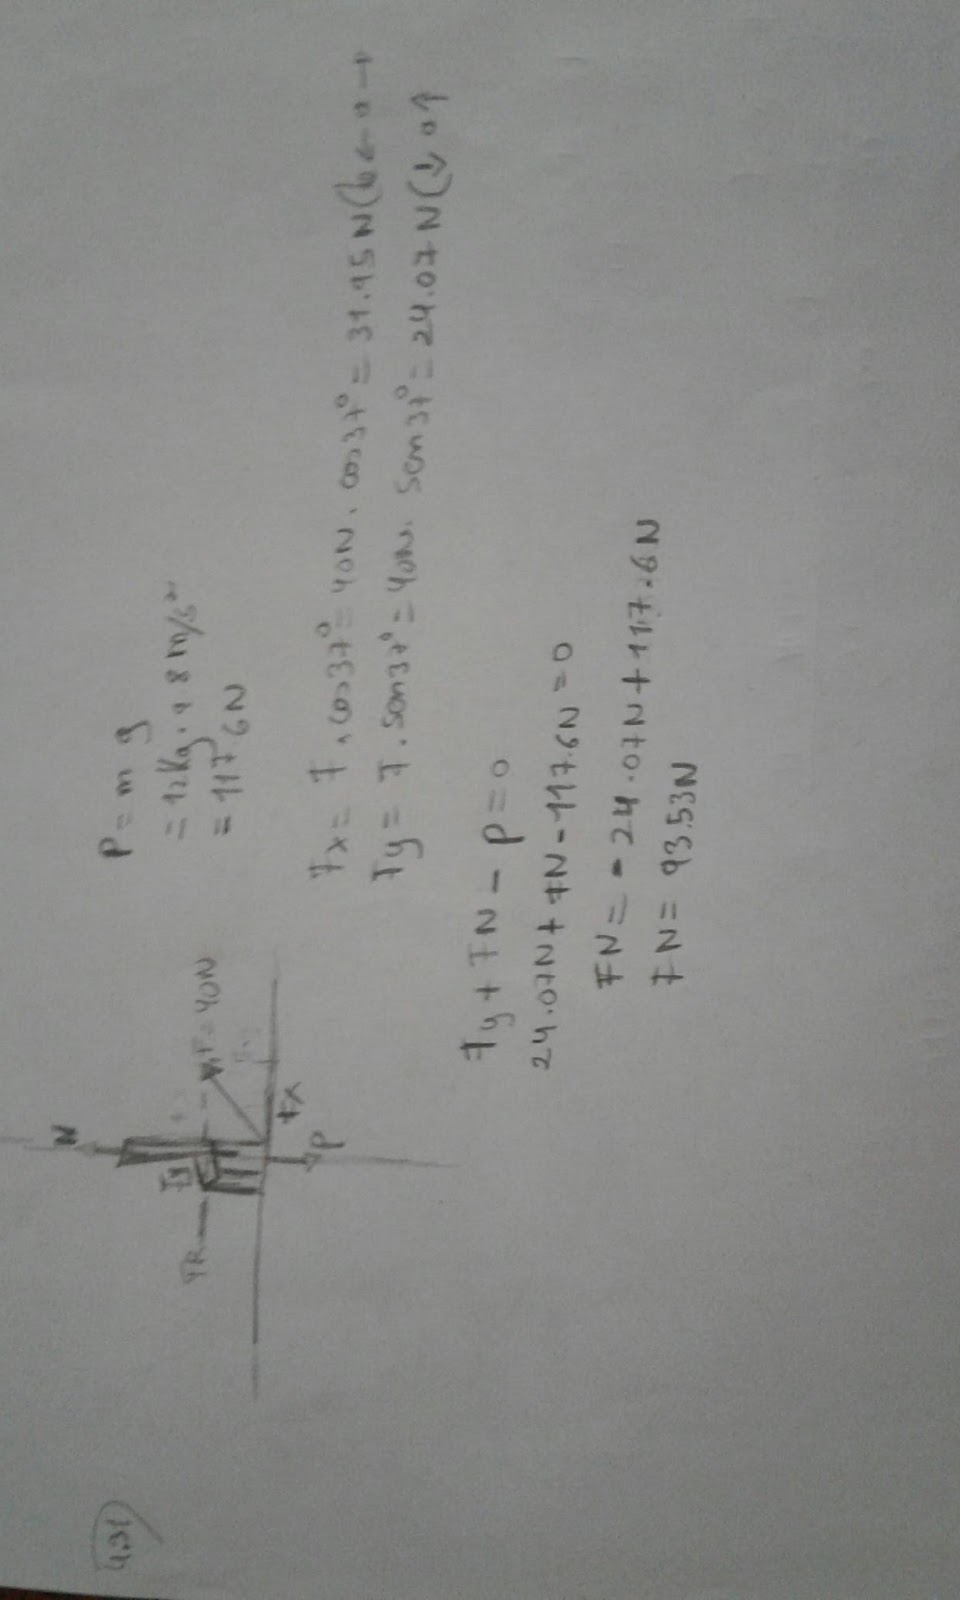 4.31
N
Fy
FR
F=40N
Fx
P
P = m g
= 12Kg . 9 8 m/s²
= 117 6N
Fx = F . cos37° = 40N . cos37° = 31.95N (← o →
Fy = F . sen37° = 40N . sen37° = 24.07N (↓ o↑
Fy + FN - P = 0
24.07N + FN - 117.6N = 0
FN = - 24.07N + 117.6N
FN = 93.53N